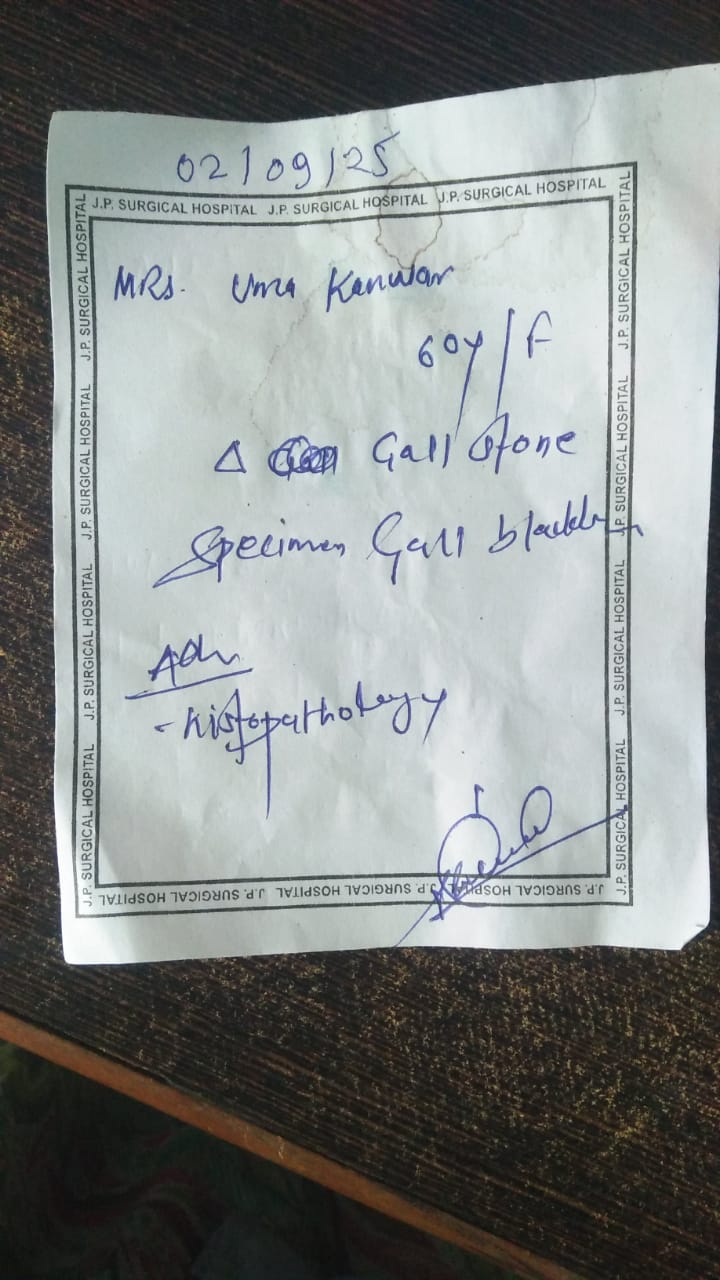 02/09/25
J.P. SURGICAL HOSPITAL J.P. SURGICAL HOSPITAL J.P. SURGICAL HOSPITAL
MRs. Uma Kanwar
60y/F
Δ Gall Stone
Specimen Gall bladder
Adv
- Histopathology
J.P. SURGICAL HOSPITAL J.P. SURGICAL HOSPITAL J.P. SURGICAL HOSPITAL
J.P. SURGICAL HOSPITAL J.P. SURGICAL HOSPITAL J.P. SURGICAL HOSPITAL J.P. SURGICAL HOSPITAL
J.P. SURGICAL HOSPITAL J.P. SURGICAL HOSPITAL J.P. SURGICAL HOSPITAL J.P. SURGICAL HOSPITAL